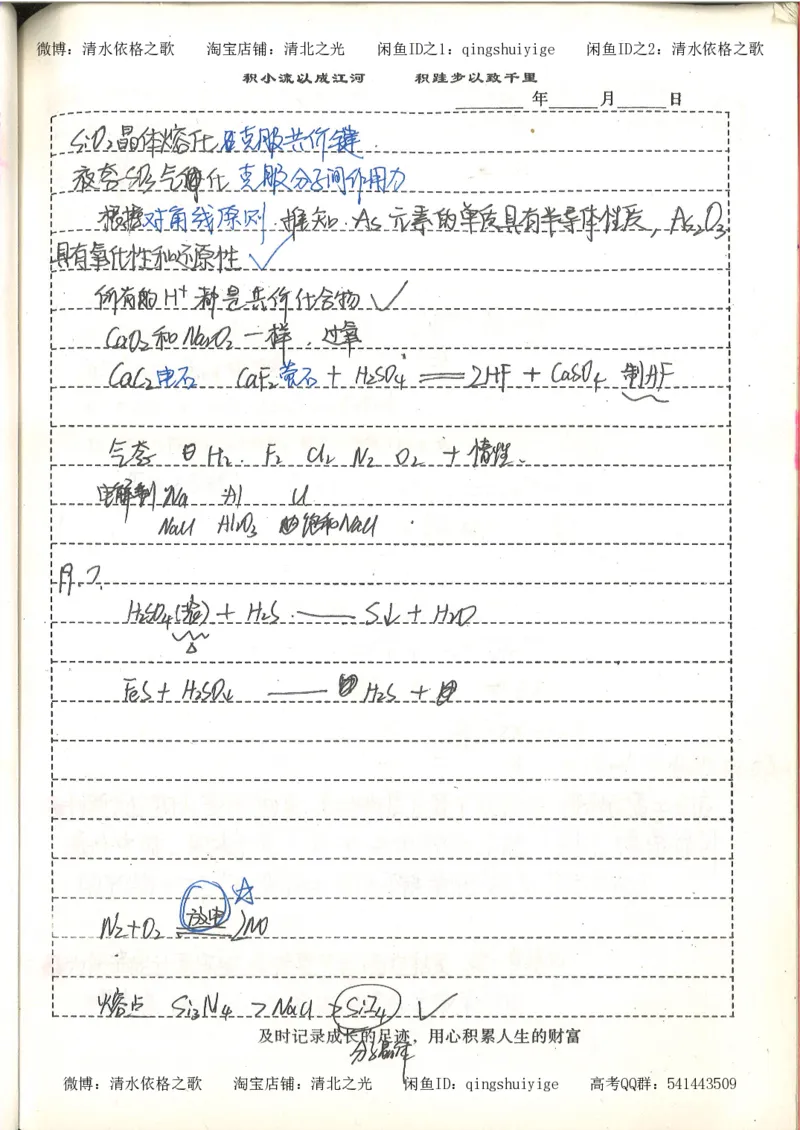 微博：清水依格之歌 淘宝店铺：清北之光 闲鱼ID之1：qingshuiyige 闲鱼ID之2：清水依格之歌
积小流以成江河 积跬步以致千里
年 月 日
SiO₂晶体熔化 克服共价键
液态 气化 克服分子间作用力
根据对角线原则 推知 As 元素的单质具有半导体性质，As₂O₃
具有氧化性和还原性 ✓
所有的 H⁺ 都是共价化合物 ✓
CaO₂和Na₂O₂一样，过氧
CaC₂电石 CaF₂萤石 + H₂SO₄ == 2HF + CaSO₄ 制HF
气态 H₂. F₂ Cl₂ N₂ O₂ + 惰性.
电解制 Na Al Cl
NaCl Al₂O₃ 饱和NaCl
H₂SO₄(浓) + H₂S —— S↓ + H₂O
△
FeS + H₂SO₄ —— H₂S +
N₂+O₂ 放电 2NO ☆
熔点 Si₃N₄ > NaCl > SiI₄ ✓
及时记录成长的足迹，用心积累人生的财富
分子晶体
微博：清水依格之歌 淘宝店铺：清北之光 闲鱼ID：qingshuiyige 高考QQ群：541443509